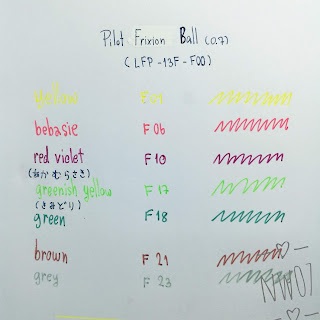 Pilot Frixion Ball (0.7)
(LFP-13F-F00)
yellow F01
bebasie F06
red violet F10
(あかむらさき)
greenish yellow F17
(きみどり)
green F18
brown F21
grey F23